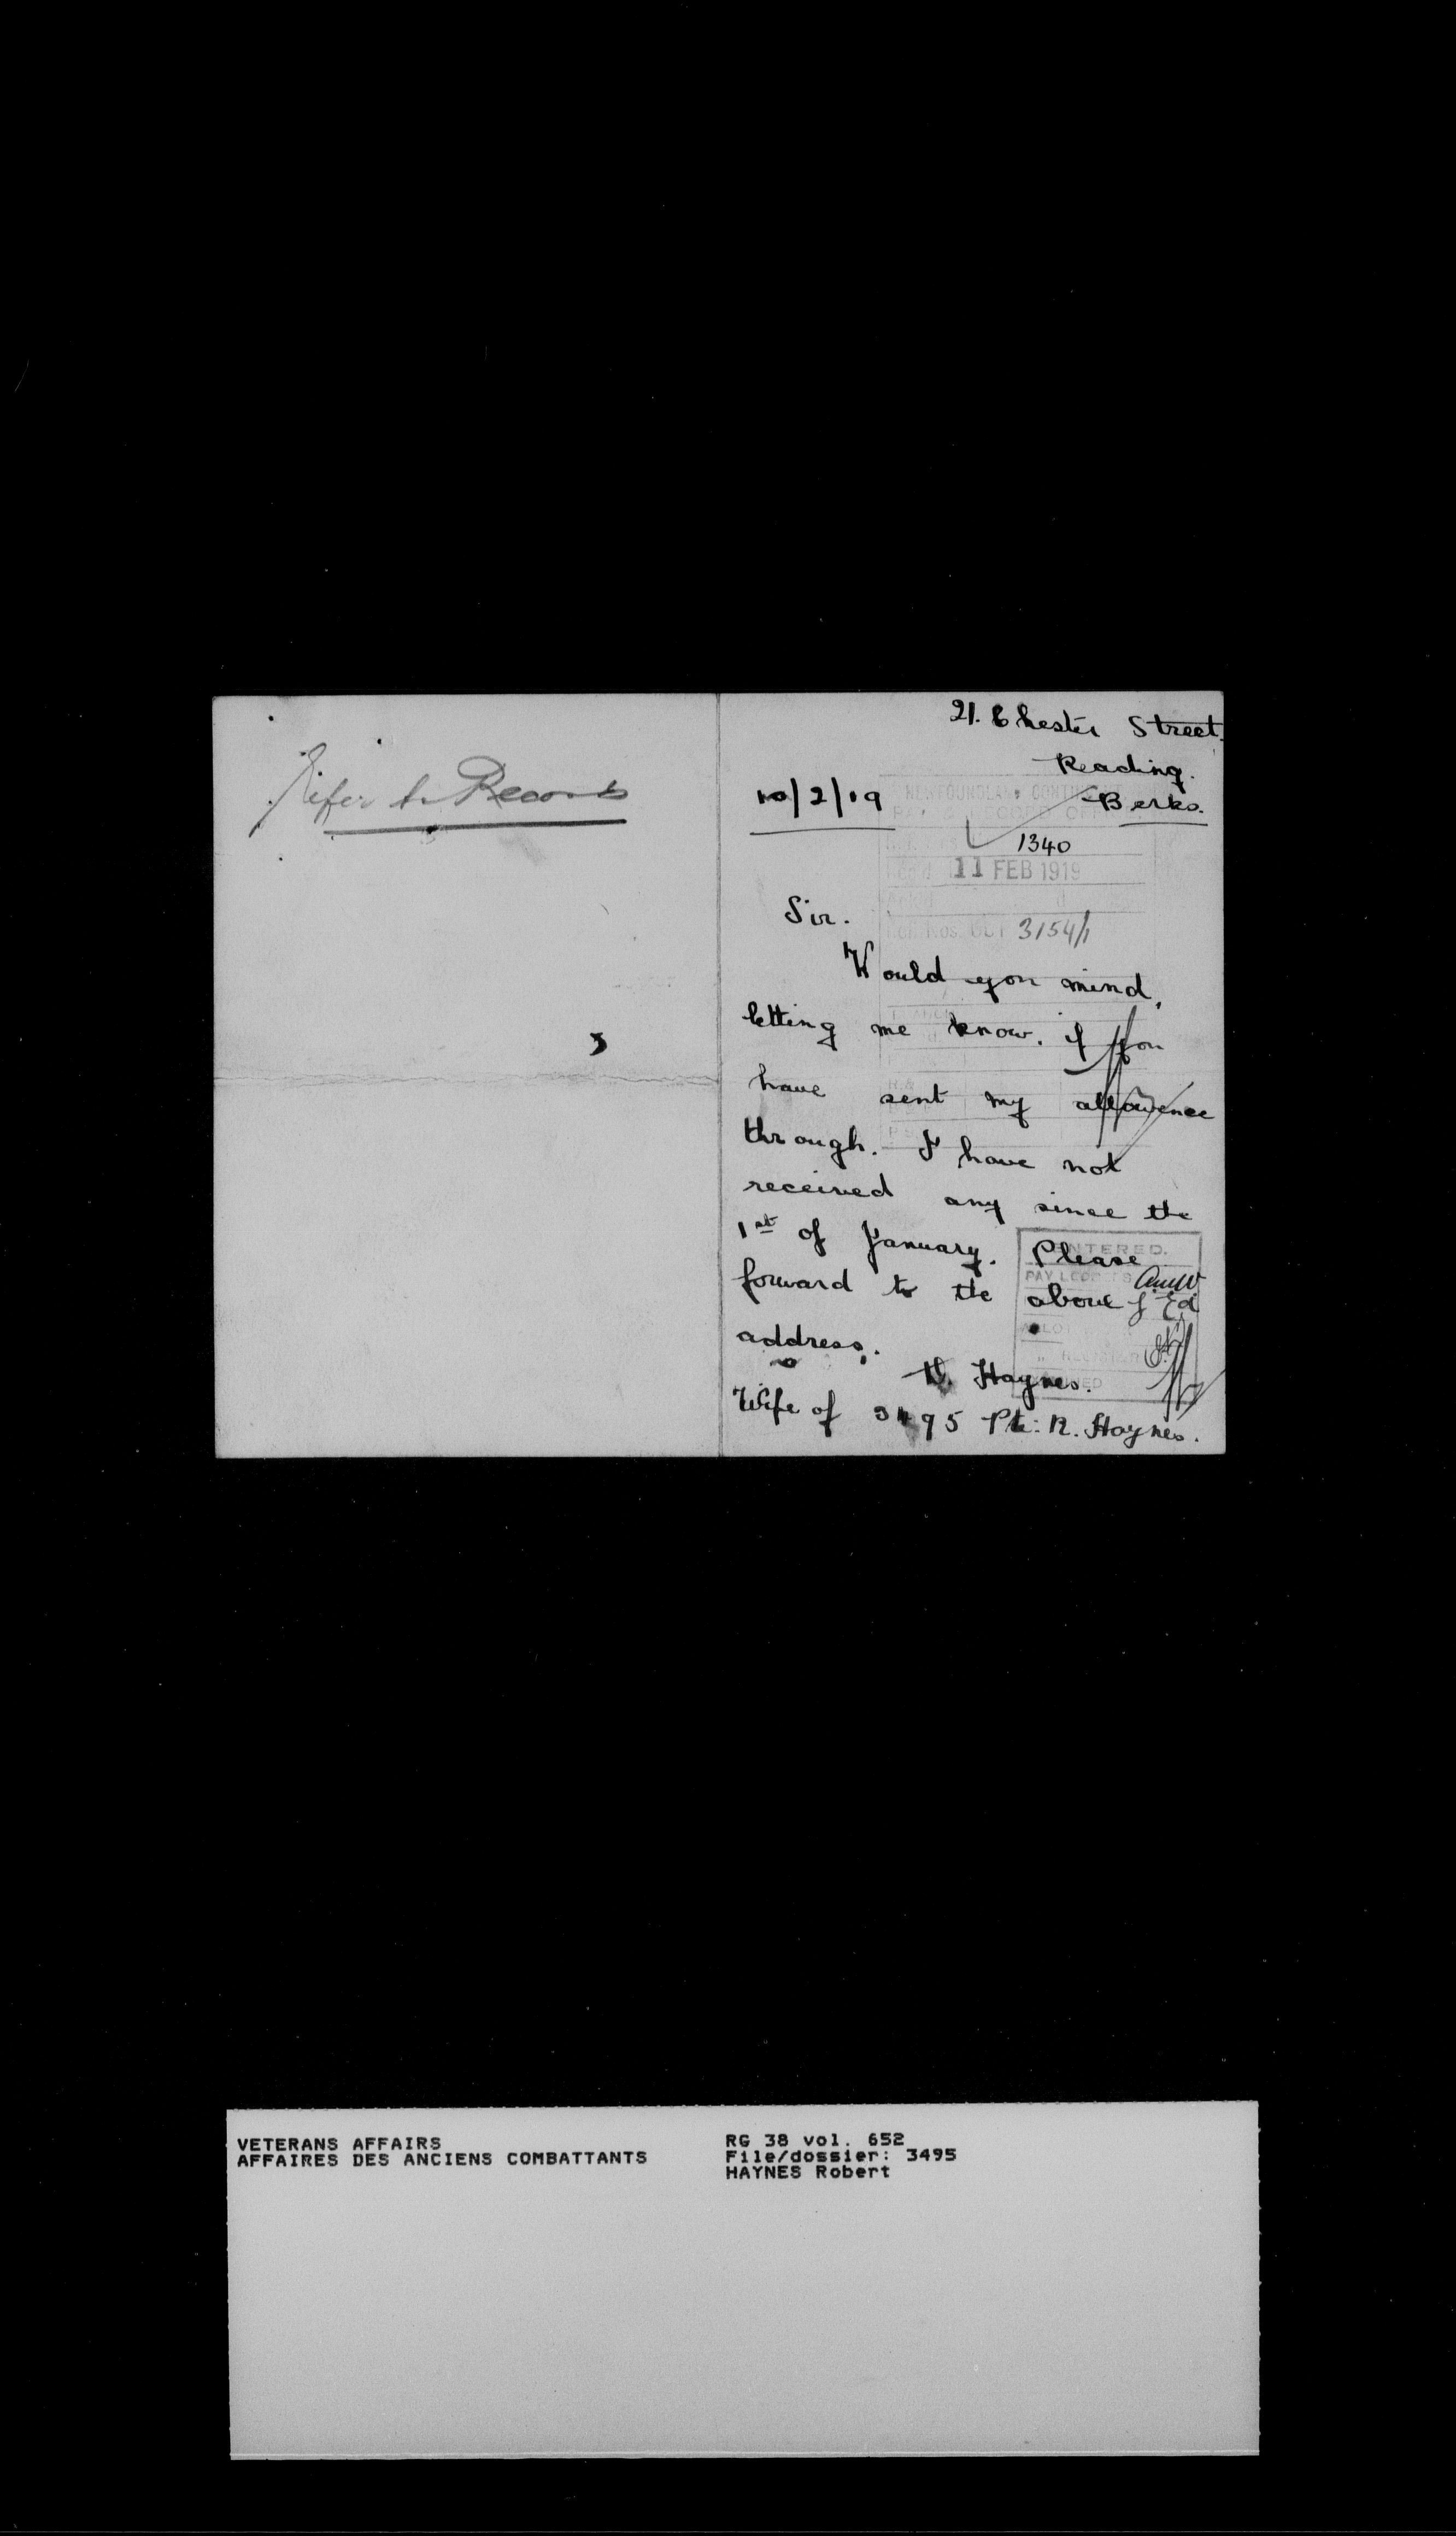 Refer to Records
21. Chester Street.
Reading.
Berks.
10/2/19
NEWFOUNDLAND CONTINGENT
PAY & RECORD OFFICE
1340
Rec'd 11 FEB 1919
3154/1
Sir.
Would you mind,
letting me know. if you
have sent my allowence
through. I have not
received any since the
1st of January. Please
forward to the above
address.
Haynes.
Wife of 3495 Pte: R. Haynes.
ENTERED.
PAY LEDGERS
VETERANS AFFAIRS
AFFAIRES DES ANCIENS COMBATTANTS
RG 38 vol. 652
File/dossier: 3495
HAYNES Robert